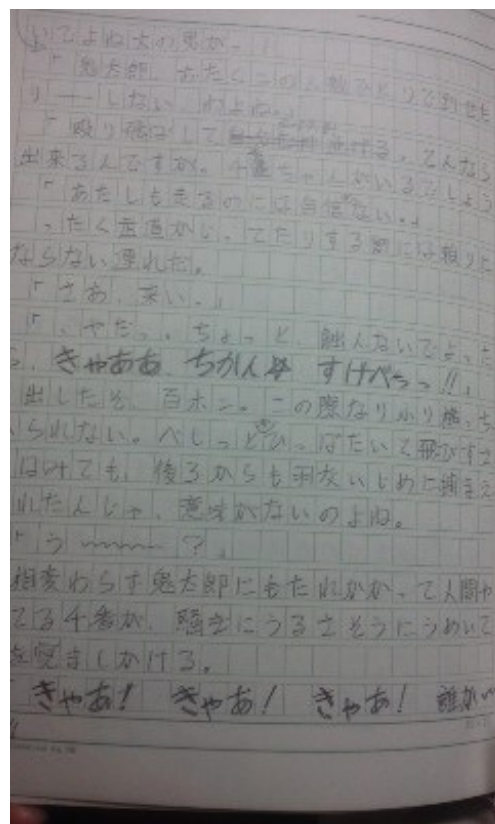 してよね大の男が。」
「鬼太郎、おたくこの人数ひとりで倒せた
り──しない、わよね。」
「殴り飛ばして る。てんなら
出来るんですが。千番ちゃんがいるでしょう
「あたしも走るのには自信ない。」
ったく垂直がじってたりする割には頼りに
ならない連れだ。
「さあ、来い。」
「、やだっ。ちょっと、触んないでよった
ら、きゃああ ちかん すけべっっ!!」
出したぞ、百木二。この際なりふり構っち
ゃられない。べしっとひっぱたいて飛びすさ
はいても、後ろからも羽交いじめに捕まえ
れたんじゃ、意味がないのよね。
「う〰〰〰?」
相変わらず鬼太郎にもたれかかって人間や
てる千番が、騒ぎにうるさそうにうめいて
を覚ましかける。
「きゃあ! きゃあ! きゃあ! 誰かい